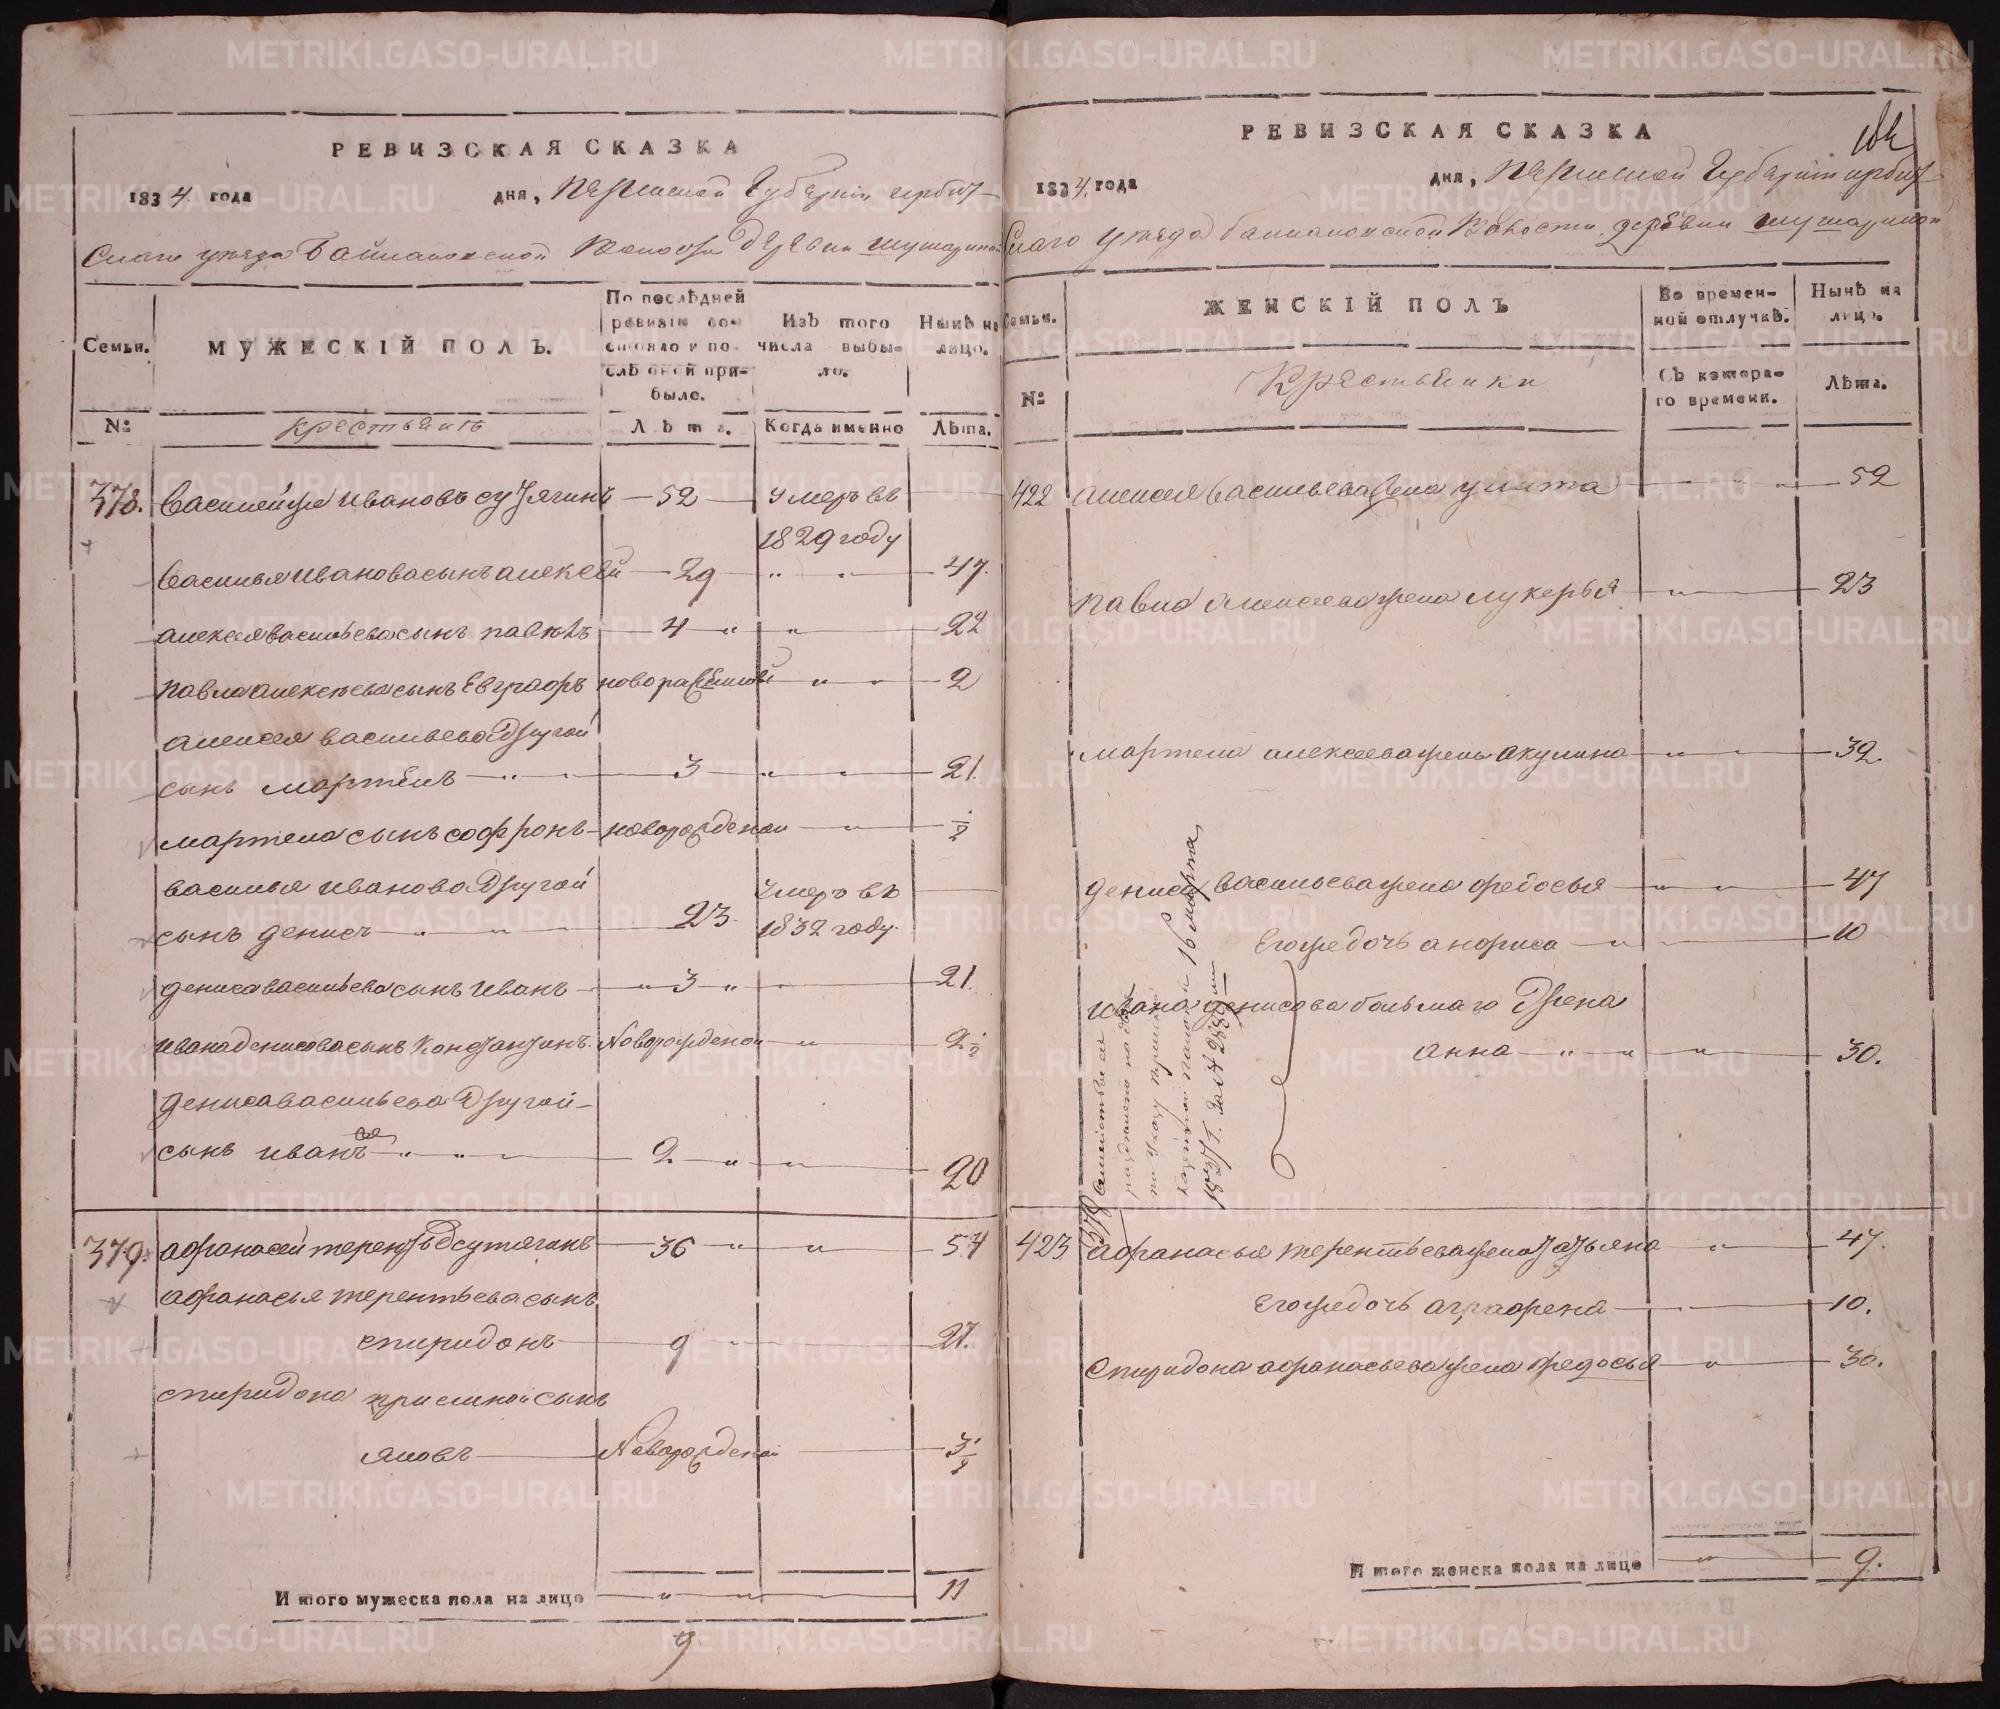 РЕВИЗСКАЯ СКАЗКА
1834. года дня, Пермской Губернии ирбит-
скаго уезда Байкаловской Волости Деревни шушариной
Семьи.
МУЖЕСКІЙ ПОЛЪ.
По послѣдней ревизіи со-
стояло и по-
слѣ оной при-
было.
Изъ того
числа выбы-
ло.
Нынѣ на
лицо.
№: крестьянъ Лѣта. Когда именно Лѣта.
378. Василей Ивановъ сутягинъ 52 умеръ въ
1829 году
Василья Иванова сынъ алексей 29 " " 47.
алексея васильева сынъ павелъ 4 " " 22
павла алексеева сынъ Евграфъ новорожденной " " 2
алексея васильева Другой
сынъ мартемъ " " 3 " " 21.
мартема сынъ софронъ новорожденой " 1/2
василья иванова Другой умеръ въ
сынъ денисъ " " 23. 1832 году.
дениса васильева сынъ Иванъ " 3 " " 21.
ивана денисова сынъ Константинъ Новорожденой " 2 1/2
дениса васильева Другой
сынъ иванъ " " 2 " " 20
379. афанасей терентьевъ сутягинъ 36 " " 54
афанасья терентьева сынъ
спиридонъ 9 " 27.
спиридона приемной сынъ
яковъ Новорожденой 3 1/2
Итого мужеска пола на лицо " " 11
9
РЕВИЗСКАЯ СКАЗКА
1834. года дня, Пермской Губернии ирбит-
скаго уезда байкаловской Волости деревни шушариной
Семьи.
ЖЕНСКІЙ ПОЛЪ
Во времен-
ной отлучкѣ.
Нынѣ на
лицо.
№: Крестьянки
Съ котора-
го времени.
Лѣта.
422 алексея васильева жена улита " " 52
павла алексеева жена лукерья " " 23
мартема алексеева жена акулина " " 32.
дениса васильева жена федосья " " 47
Егожедочь анфиса " 10
ивана денисова большаго Жена
анна " " " 30.
16 марта
1857 г. за № 2889
423 афанасья терентьева жена татьяна " 47.
Егожедочь аграфена " 10.
Спиридона афанасьева жена федосья " 30.
Итого женска пола на лицо " 9.
METRIKI.GASO-URAL.RU